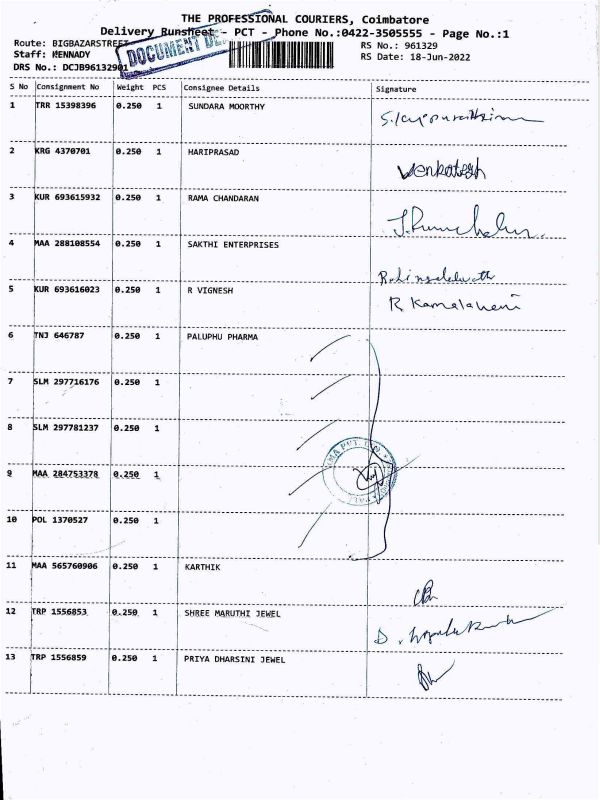 THE PROFESSIONAL COURIERS, Coimbatore
Delivery Runsheet - PCT - Phone No.:0422-3505555 - Page No.:1
Route: BIGBAZARSTREET
RS No.: 961329
Staff: KENNADY
RS Date: 18-Jun-2022
DRS No.: DCJB96132901
DOCUMENT DE
S No Consignment No Weight PCS Consignee Details Signature
1 TRR 15398396 0.250 1 SUNDARA MOORTHY
2 KRG 4370701 0.250 1 HARIPRASAD Venkatesh
3 KUR 693615932 0.250 1 RAMA CHANDARAN
4 MAA 288108554 0.250 1 SAKTHI ENTERPRISES
5 KUR 693616023 0.250 1 R VIGNESH R Kamalaveni
6 TNJ 646787 0.250 1 PALUPHU PHARMA
7 SLM 297716176 0.250 1
8 SLM 297781237 0.250 1
9 MAA 284753378 0.250 1
10 POL 1370527 0.250 1
11 MAA 565760906 0.250 1 KARTHIK
12 TRP 1556853 0.250 1 SHREE MARUTHI JEWEL
13 TRP 1556859 0.250 1 PRIYA DHARSINI JEWEL